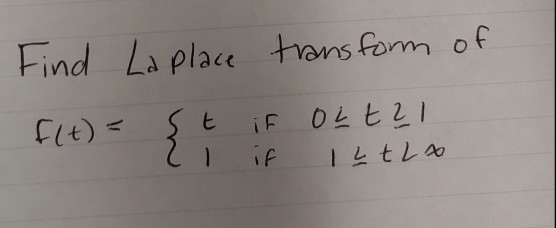 Find Laplace transform of
f(t) = { t if 0 ≤ t ≥ 1
1 if 1 ≤ t < ∞